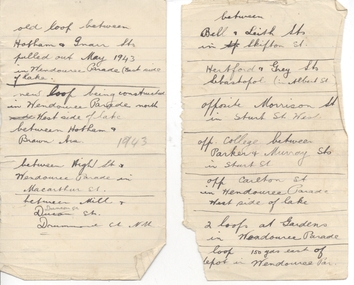 old loop between
Hotham & Gnarr Sts
pulled out May 1943
in Wendouree Parade (East side
of lake.
new loop being constructed
in Wendouree Parade north
West side of lake
between Hotham &
Brawn Ave 1943
between High St &
Wendouree Parade in
Macarthur St.
between Mill &
St.
Drummond St. Nth
between
Bell & Leith Sts
in Skipton St.
Hertford & Grey Sts
Sebastopol in Albert St
opposite Morrison St
in Sturt St West.
off College between
Parker & Murray Sts
in Sturt St
off Carlton St
in Wendouree Parade
West side of lake
2 loops at Gardens
in Wendouree Parade
loop 150 yds east of
depot in Wendouree Par.